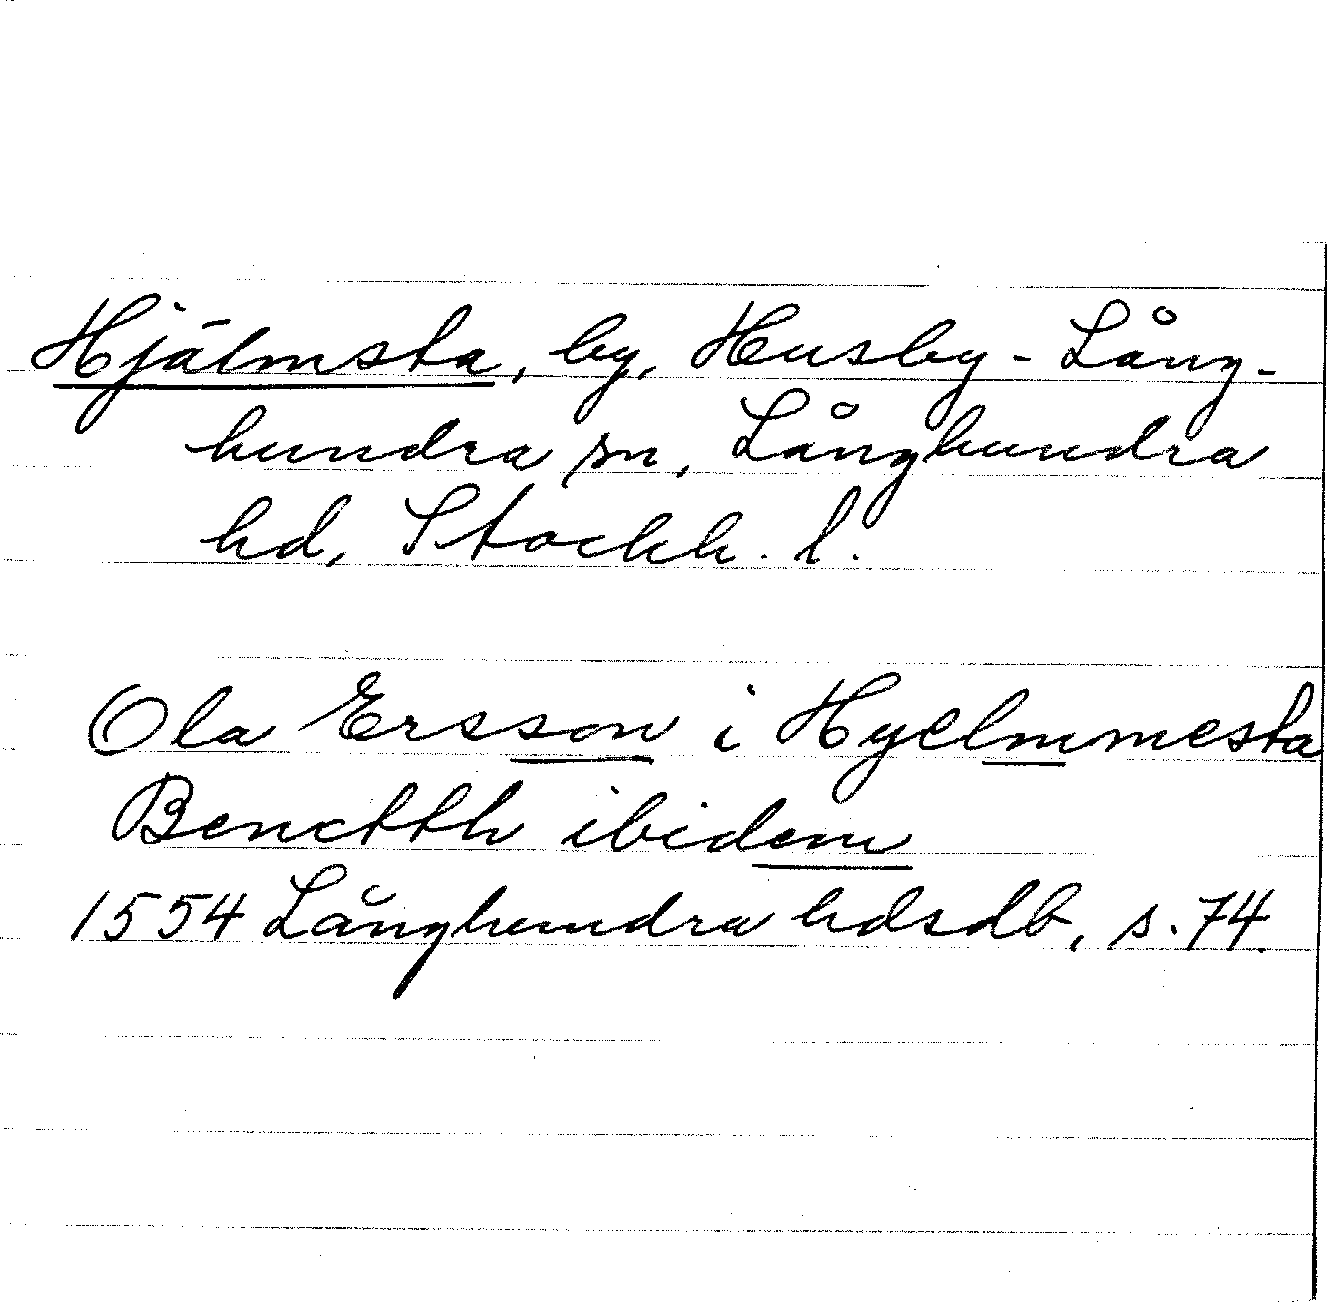 Hjälmsta, by, Husby-Lång-
hundra sn, Långhundra
hd, Stockh. l.
Ola Ersson i Hyelmmesta
Benctth ibidem
1554 Långhundra hdsdb, s. 74.